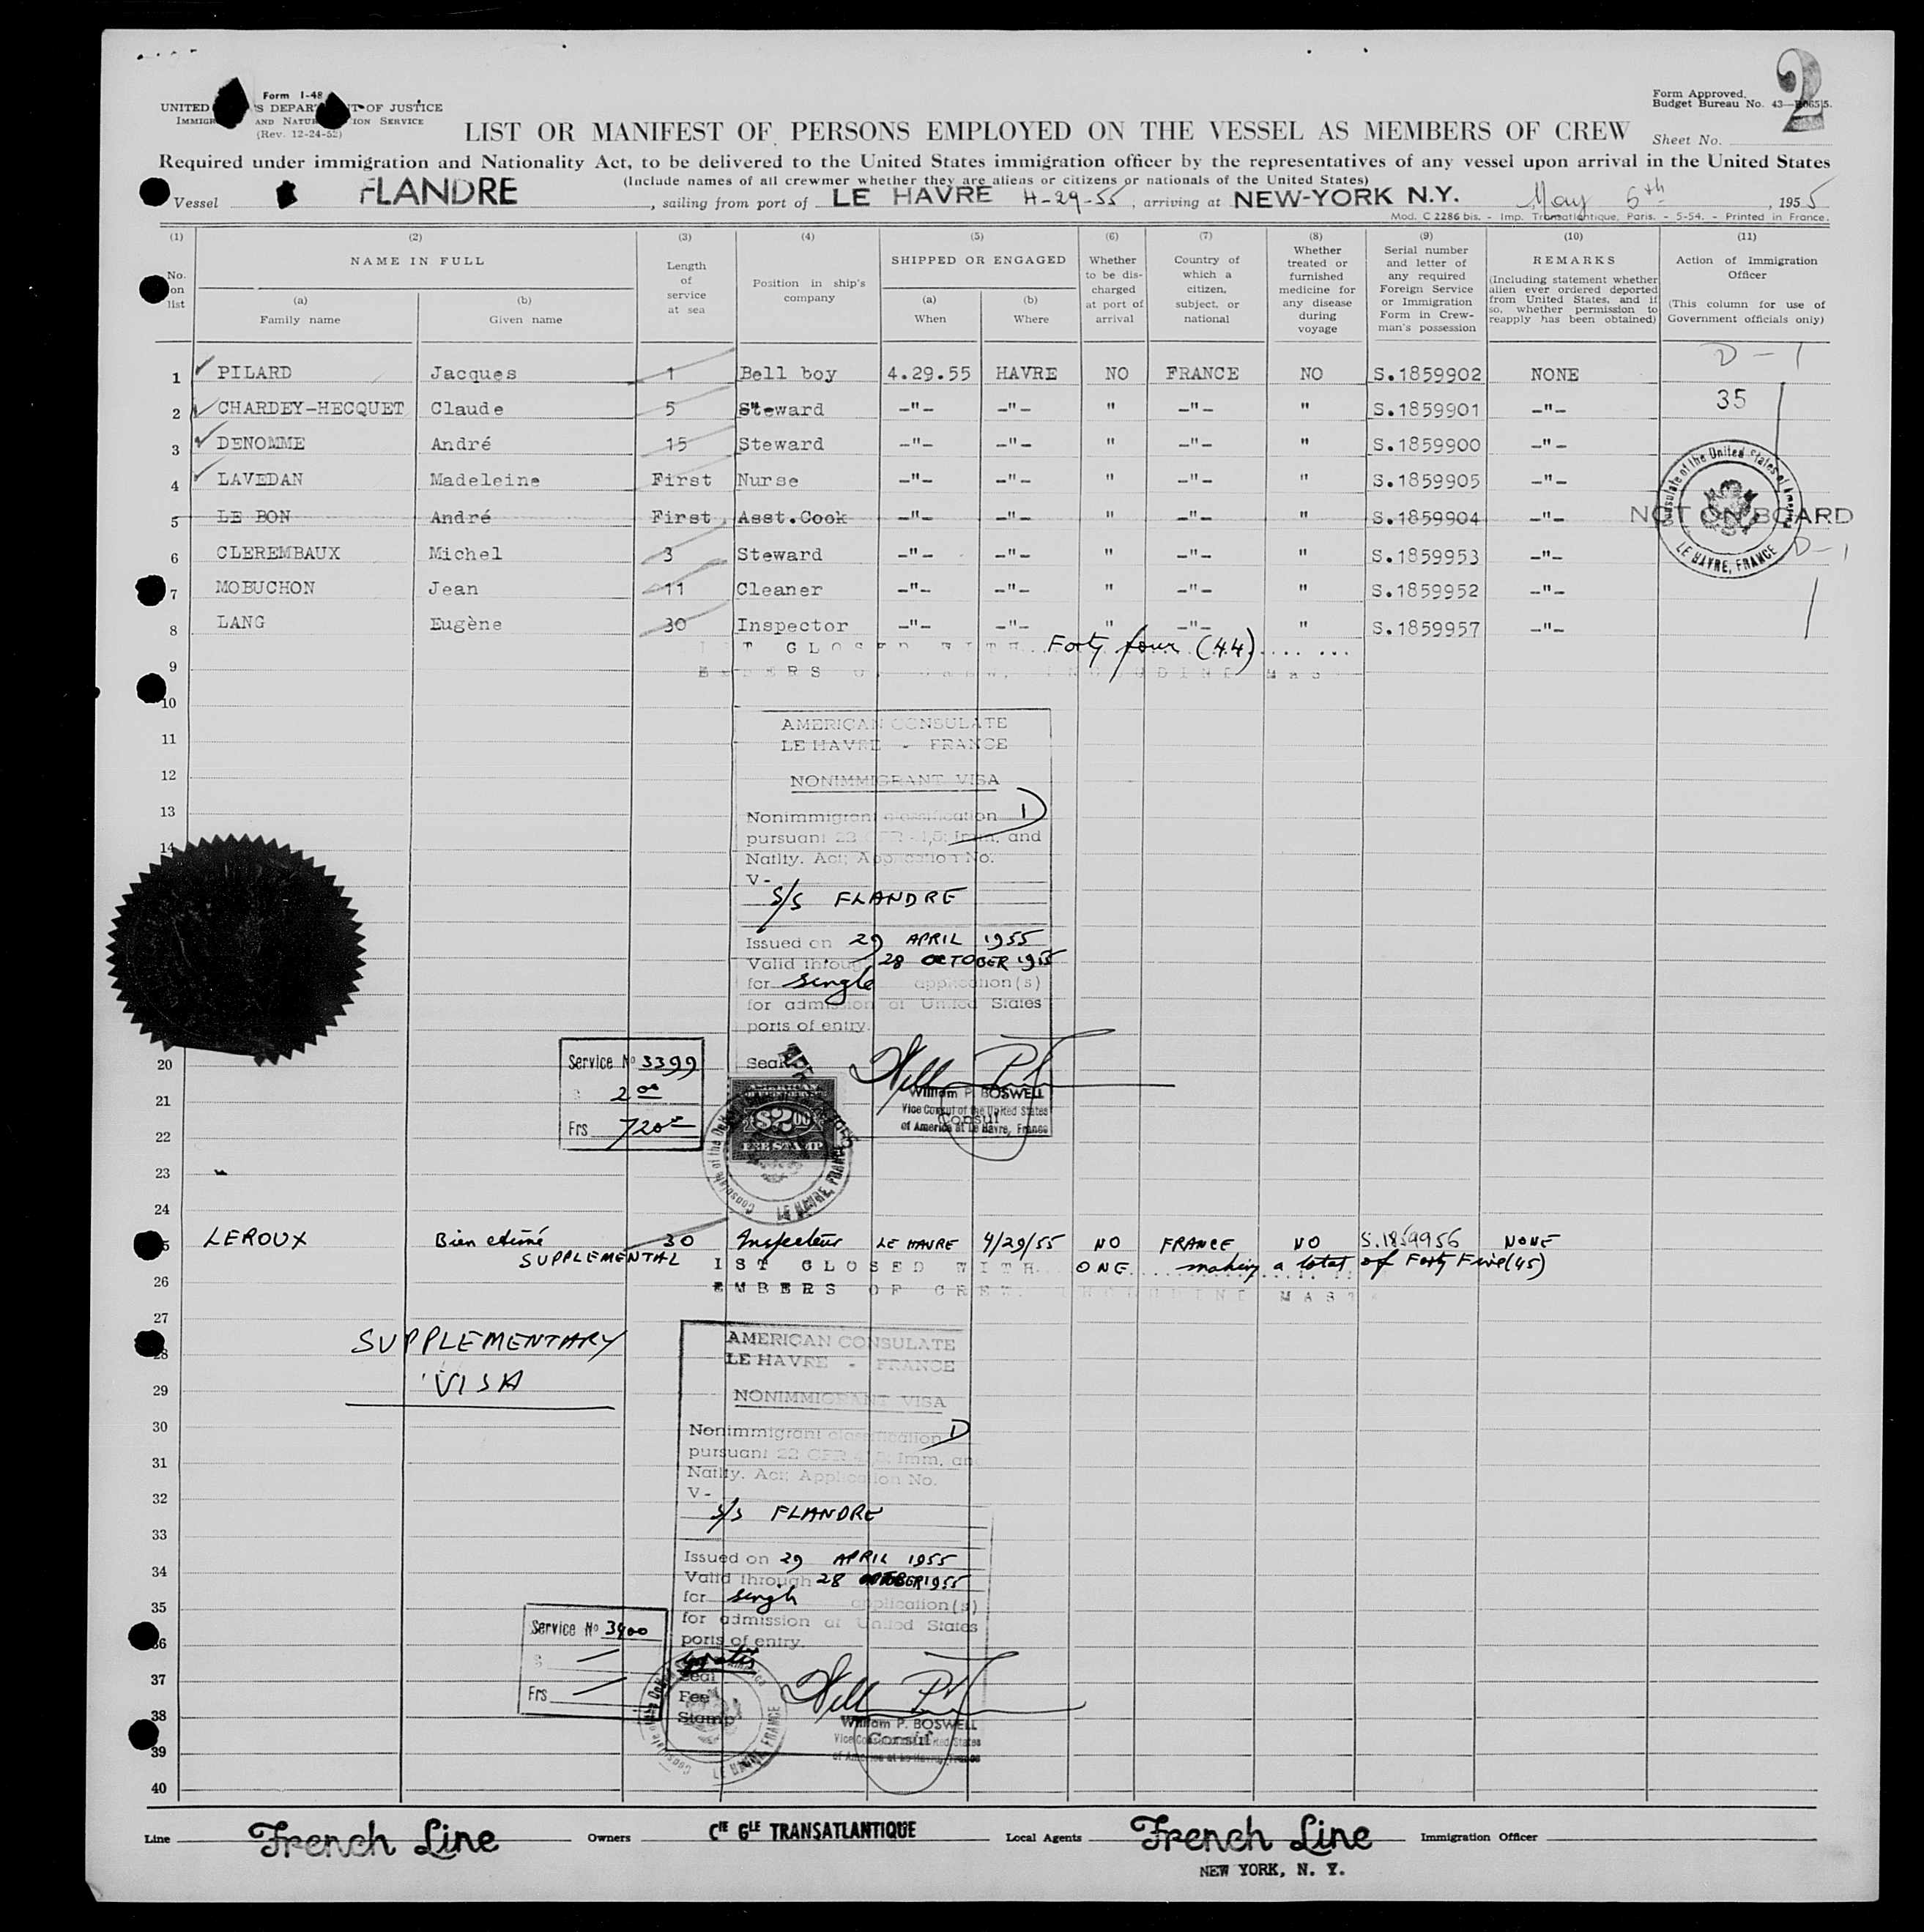 Form I-48
UNITED 'S DEPAR T OF JUSTICE
IMMIGR AND NATUR ION SERVICE
(Rev. 12-24-52)
Form Approved.
Budget Bureau No. 43—R065.5.
2
Sheet No.
LIST OR MANIFEST OF PERSONS EMPLOYED ON THE VESSEL AS MEMBERS OF CREW
Required under immigration and Nationality Act, to be delivered to the United States immigration officer by the representatives of any vessel upon arrival in the United States
(Include names of all crewmer whether they are aliens or citizens or nationals of the United States)
Vessel FLANDRE, sailing from port of LE HAVRE 4-29-55, arriving at NEW-YORK N.Y. May 6th, 1955
Mod. C 2286 bis. - Imp. Transatlantique, Paris. - 5-54. - Printed in France.
(1) (2) (3) (4) (5) (6) (7) (8) (9) (10) (11)
No. on list
NAME IN FULL
(a) Family name
(b) Given name
Length of service at sea
Position in ship's company
SHIPPED OR ENGAGED
(a) When
(b) Where
Whether to be dis-charged at port of arrival
Country of which a citizen, subject, or national
Whether treated or furnished medicine for any disease during voyage
Serial number and letter of any required Foreign Service or Immigration Form in Crew-man's possession
REMARKS
(Including statement whether alien ever ordered deported from United States, and if so, whether permission to reapply has been obtained)
Action of Immigration Officer
(This column for use of Government officials only)
D-1
1 PILARD Jacques 1 Bell boy 4.29.55 HAVRE NO FRANCE NO S.1859902 NONE
2 CHARDEY-HECQUET Claude 5 Steward -"- -"- " -"- " S.1859901 -"- 35
3 DENOMME André 15 Steward -"- -"- " -"- " S.1859900 -"-
4 LAVEDAN Madeleine First Nurse -"- -"- " -"- " S.1859905 -"-
5 LE BON André First Asst.Cook -"- -"- " -"- " S.1859904 -"- NOT ON BOARD
6 CLEREMBAUX Michel 3 Steward -"- -"- " -"- " S.1859953 -"- D-1
7 MOBUCHON Jean 11 Cleaner -"- -"- " -"- " S.1859952 -"-
8 LANG Eugène 30 Inspector -"- -"- " -"- " S.1859957 -"-
Consulate of the United States of America
LE HAVRE, FRANCE
IST CLOSED WITH Forty four (44)
9
EMBERS OF CREW, INCLUDING MAS
10
11
12
13
14
AMERICAN CONSULATE
LE HAVRE - FRANCE
NONIMMIGRANT VISA
Nonimmigrant classification D
pursuant 22 CFR 41,5; Imm. and
Natlty. Act; Application No.
V-
S/S FLANDRE
Issued on 29 APRIL 1955
Valid through 28 OCTOBER 1955
for single application(s)
for admission at United States
ports of entry.
Seal
William P. BOSWELL
Vice Consul of the United States
Consul
of America at Le Havre, France
Service No 3399
$ 2 00
Frs 720
AMERICAN
$2.00
FEE STAMP
Consulate of the United
LE HAVRE, FRANCE
20
21
22
23
24
LEROUX Bien aimé 30 Inspecteur LE HAVRE 4/29/55 NO FRANCE NO S.1859956 NONE
SUPPLEMENTAL IST CLOSED WITH ONE making a total of Forty Five (45)
26
EMBERS OF CREW, INCLUDING MAST
27
28
29
SUPPLEMENTARY
VISA
30
31
32
33
34
35
36
37
38
39
40
AMERICAN CONSULATE
LE HAVRE - FRANCE
NONIMMIGRANT VISA
Nonimmigrant classification D
pursuant 22 CFR 41,5; Imm. and
Natlty. Act; Application No.
V-
S/S FLANDRE
Issued on 29 APRIL 1955
Valid through 28 OCTOBER 1955
for single application(s)
for admission at United States
ports of entry.
gratis
Seal
Fee
Stamp
William P. BOSWELL
Vice Consul of the United States
Consul
of America at Le Havre, France
Service No 3400
$
Frs
LE HAVRE, FRANCE
Line French Line Owners CIE GLE TRANSATLANTIQUE Local Agents French Line Immigration Officer
NEW YORK, N. Y.